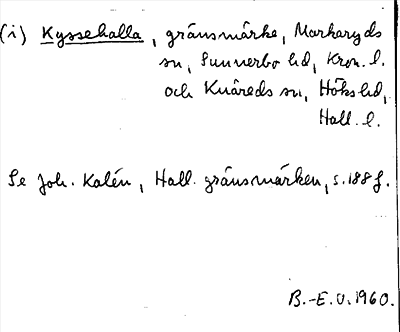 (i) Kyssehalla, gränsmärke, Markaryds
sn, Sunnerbo hd, Kron. l.
och Knäreds sn, Höks hd,
Hall. l.
Se Joh. Kalén, Hall. gränsmärken, s. 188 f.
B.-E. O. 1960.